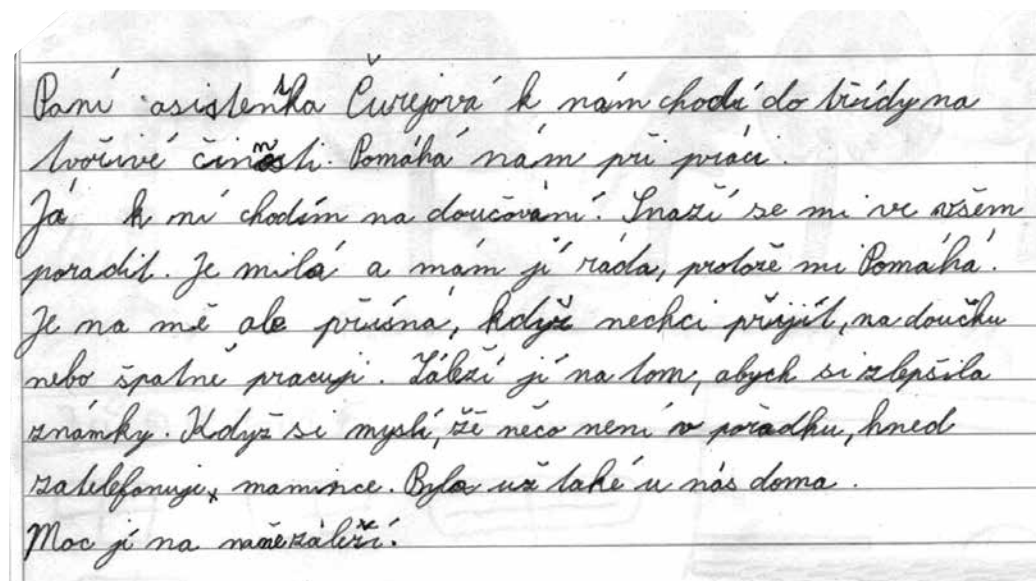 Paní asistentka Čurejová k nám chodí do třídy na
tvořivé činnosti. Pomáhá nám při práci.
Já k ní chodím na doučování. Snaží se mi ve všem
poradit. Je milá a mám jí ráda, protože mi Pomáhá.
Je na mě ale přísná, když nechci přijít, na doučku
nebo špatně pracuji. Záleží jí na tom, abych si zlepšila
známky. Když si myslí, že něco není v pořádku, hned
zatelefonuje, mamince. Byla už také u nás doma.
Moc jí na mně záleží.